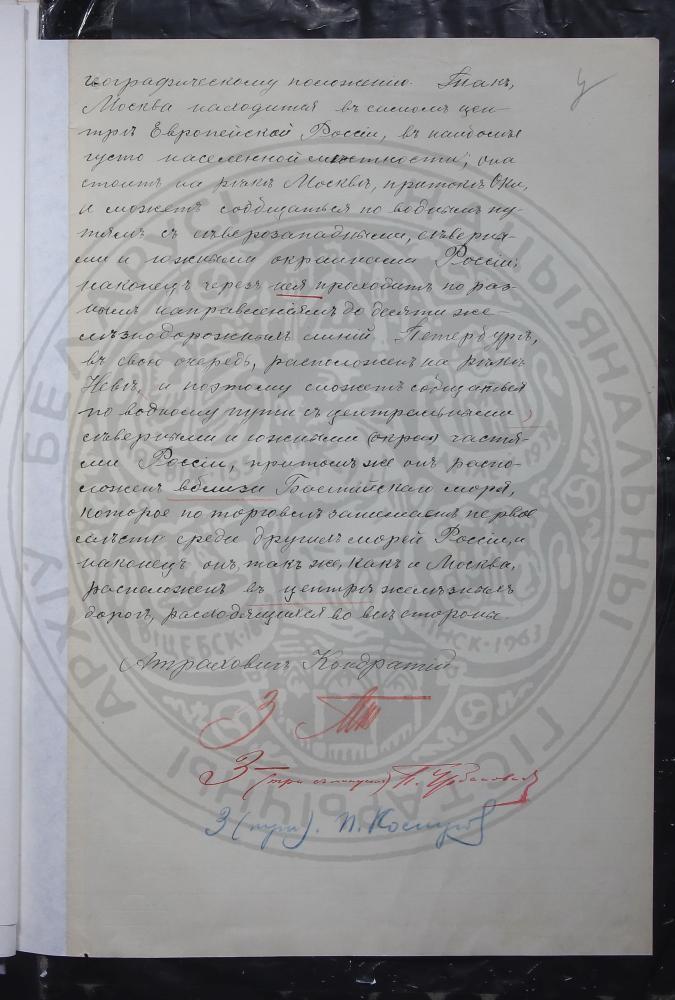 географическому положению. Такъ,
Москва находится въ самомъ цен-
трѣ Европейской Россіи, въ наиболѣе
густо населенной мѣстности; она
стоитъ на рѣкѣ Москвѣ, притокѣ Оки,
и можетъ сообщаться по воднымъ пу-
тямъ съ сѣверозападными, сѣверны-
ми и южными окраинами Россіи;
наконецъ черезъ нея проходитъ по раз-
нымъ направленіямъ до десяти же-
лѣзнодорожныхъ линій. Петербургъ,
въ свою очередь, расположенъ на рѣкѣ
Невѣ, и поэтому можетъ сообщаться
по водному пути съ центральными,
сѣверными и южными (окраи) частя-
ми Россіи, притомъ же онъ распо-
ложенъ вблизи Балтійскаго моря,
которое по торговлѣ занимаетъ первое
мѣсто среди другихъ морей Россіи, и
наконецъ онъ, такъ же, какъ и Москва,
расположенъ въ центрѣ желѣзныхъ
дорогъ, расходящихся во всѣ стороны.
Атраховичъ Кондратій
3
3 (три съ минусомъ) П. Урбановичъ
3 (три). П.
АРХІЎ БЕЛАРУСІ
ГІСТАРЫЧНЫ